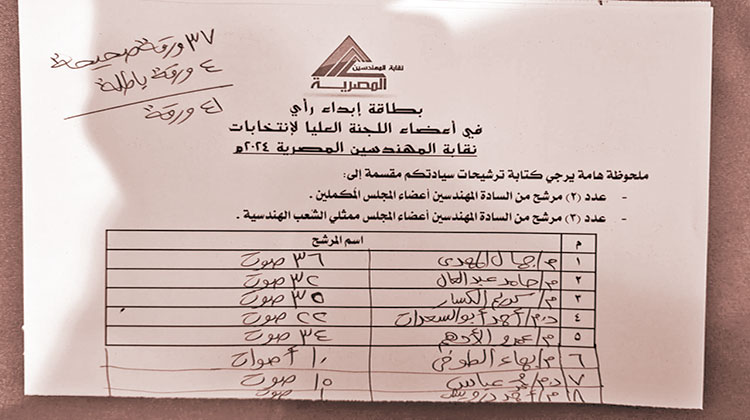 ٣٧ ورقة صحيحة
٤ ورقة باطلة
٤١ ورقة
نقابة المهندسين
المصرية
بطاقة إبداء رأي
في أعضاء اللجنة العليا لإنتخابات
نقابة المهندسين المصرية ٢٠٢٤م
ملحوظة هامة يرجي كتابة ترشيحات سيادتكم مقسمة إلى:
- عدد (٢) مرشح من السادة المهندسين أعضاء المجلس المكملين .
- عدد (٣) مرشح من السادة المهندسين أعضاء المجلس ممثلي الشعب الهندسية .
م اسم المرشح
١ م/ جمال المهدى ٣٦ صوت
٢ م/ حامد عبد العال ٣٢ صوت
٣ م/ كريم الكسار ٣٥ صوت
٤ د.م/ أحمد أبو السعدات ٢٢ صوت
٥ م/ عمرو الأدهم ٣٤ صوت
٦ م/ بهاء الطوخى ١٠ أصوات
٧ د.م/ محمد عباس ١٥ صوت
٨ م/ أحمد درويش